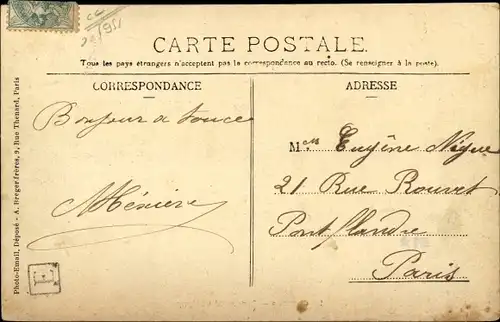 CARTE POSTALE.
Tous les pays étrangers n'acceptent pas la correspondance au recto. (Se renseigner à la poste).
CORRESPONDANCE
ADRESSE
Bonjour a touce
Ménière
M. Eugène Nigue
21 Rue Rouvet
Pont flandre
Paris
Photo-Email, Déposé - A. Breger frères, 9, Rue Thenard, Paris
E